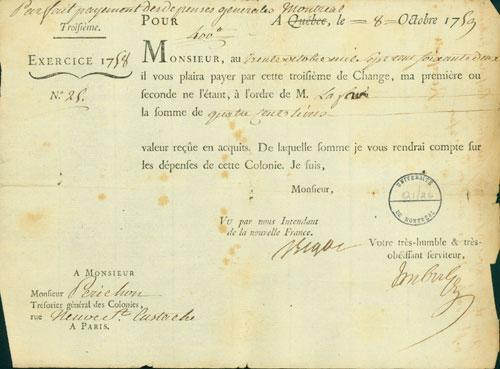 Parfait payement des depenses generales Montreal
Troisième. POUR A Québec, le 8 Octobre 1759
400lt
EXERCICE 1758 MONSIEUR, au trente octobre mil sept cent soixante deux
No. 25. il vous plaira payer par cette troisième de Change, ma première ou
seconde ne l'étant, à l'ordre de M.
la somme de quatre cent livres
valeur reçûe en acquits. De laquelle somme je vous rendrai compte sur
les dépenses de cette Colonie. Je suis,
Monsieur,
UNIVERSITÉ
DE MONTRÉAL
VU par nous Intendant
de la nouvelle France.
Bigot
Votre très-humble & très-
obéïssant serviteur,
Imbert
A MONSIEUR
Monsieur Perichon
Trésorier général des Colonies,
rue Neuve St. Eustache
A PARIS.